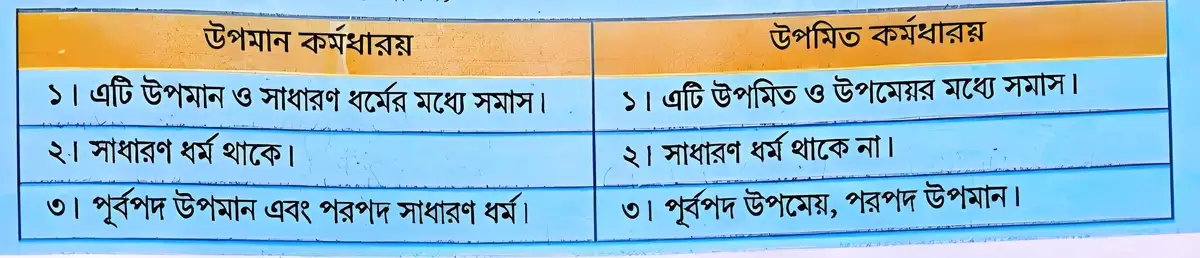 উপমান কর্মধারয়
উপমিত কর্মধারয়
১। এটি উপমান ও সাধারণ ধর্মের মধ্যে সমাস।
১। এটি উপমিত ও উপমেয়র মধ্যে সমাস।
২। সাধারণ ধর্ম থাকে।
২। সাধারণ ধর্ম থাকে না।
৩। পূর্বপদ উপমান এবং পরপদ সাধারণ ধর্ম।
৩। পূর্বপদ উপমেয়, পরপদ উপমান।